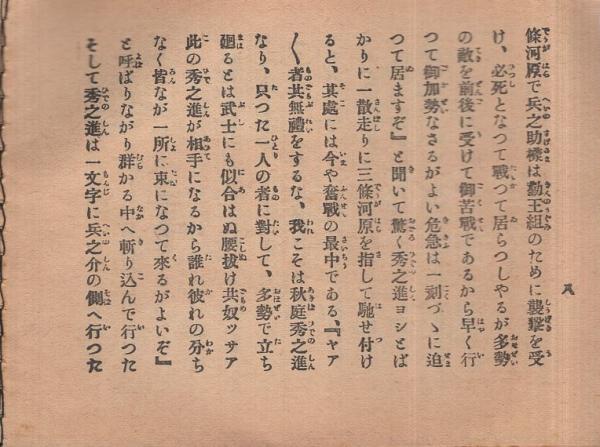 條河原で兵之助樣は勤王組のために襲撃を受
け、必死となつて戰つて居らつしやるが多勢
の敵を前後に受けて御苦戰であるから早く行
つて御加勢なさるがよい危急は一刻づゝに迫
つて居ますぞ』と聞いて驚く秀之進ヨシとば
かりに一散走りに三條河原を指して馳せ付け
ると、其處には今や奮戰の最中である、『ヤア
〳〵者共無禮をするな、我こそは秋庭秀之進
なり、只つた一人の者に對して、多勢で立ち
廻るとは武士にも似合はぬ腰拔け共奴ッサア
此の秀之進が相手になるから誰れ彼れの分ち
なく皆なが一所に束になつて來るがよいぞ』
と呼ばりながり群かる中へ斬り込んで行つた
そして秀之進は一文字に兵之介の側へ行つた
八